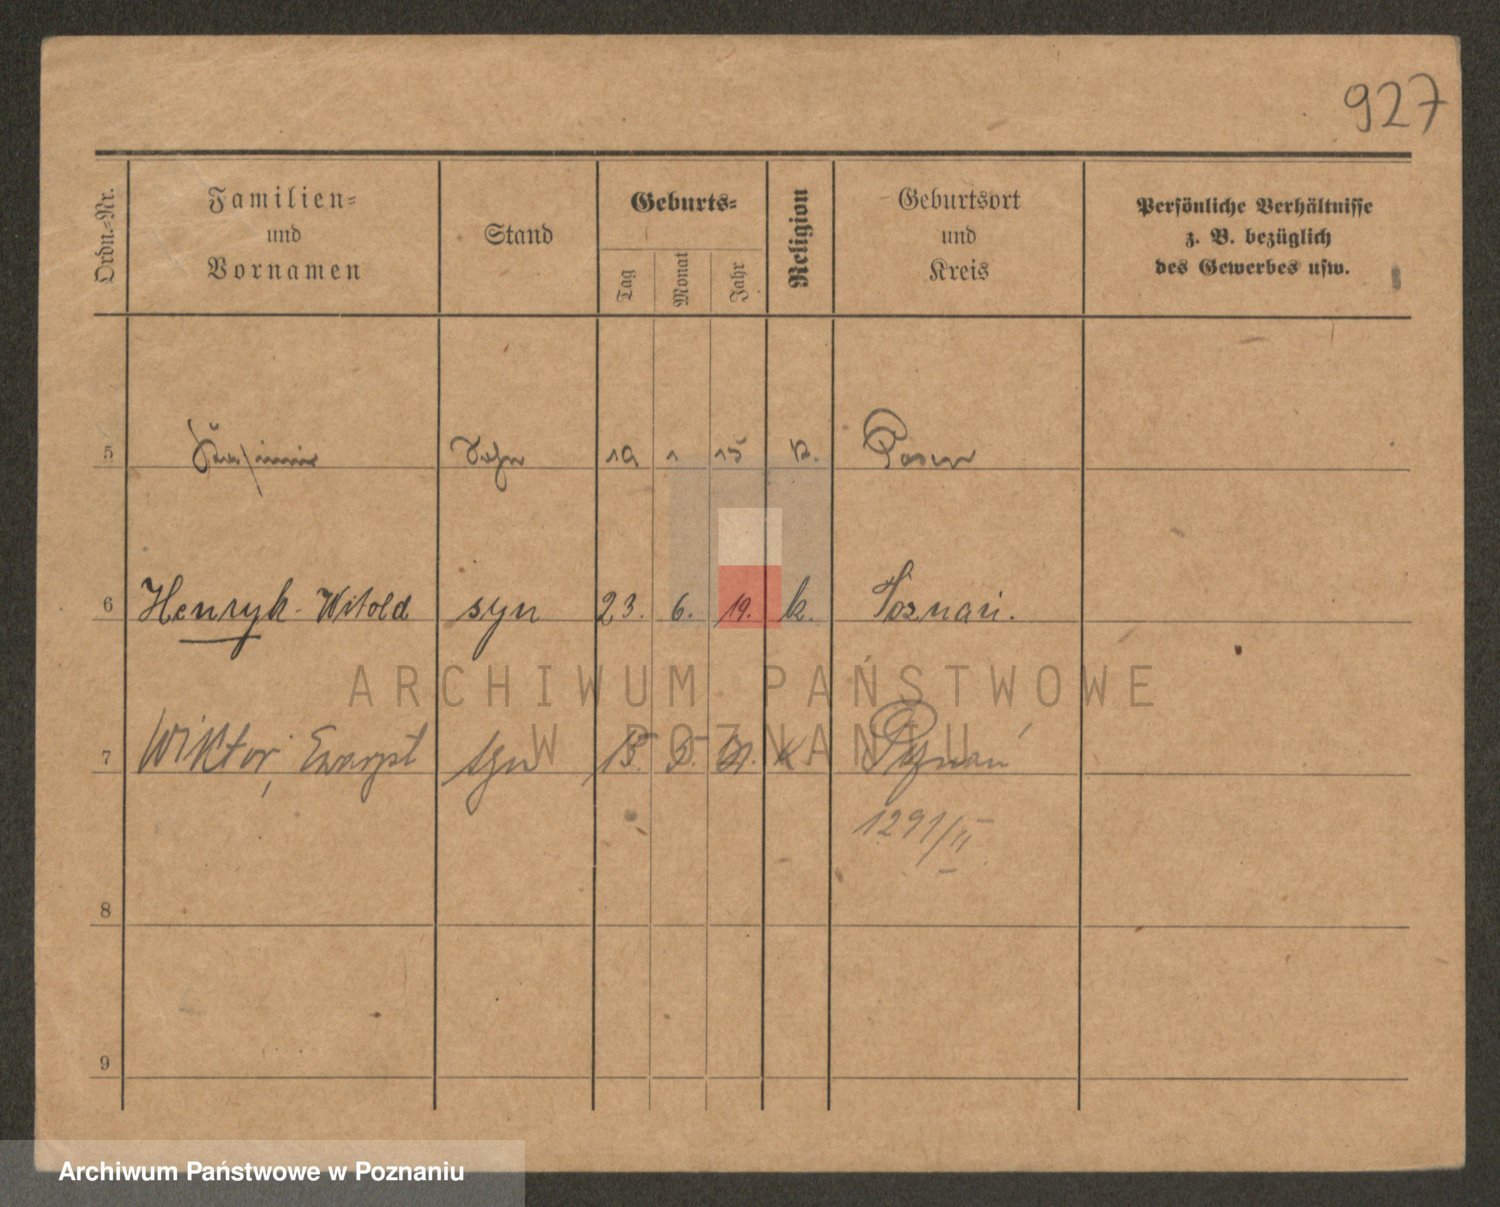 927
Ordn.=Nr.
Familien=
und
Vornamen
Stand
Geburts=
Tag
Monat
Jahr
Religion
Geburtsort
und
Kreis
Persönliche Verhältnisse
z. B. bezüglich
des Gewerbes usw.
5 Kasimir Sohn 19 1 15 k. Posen
6 Henryk - Witold syn 23. 6. 19. k. Poznań.
ARCHIWUM PAŃSTWOWE
W POZNANIU
7 Wiktor, Ewaryst syn 15. k. Poznań
1291/II
8
9
Archiwum Państwowe w Poznaniu